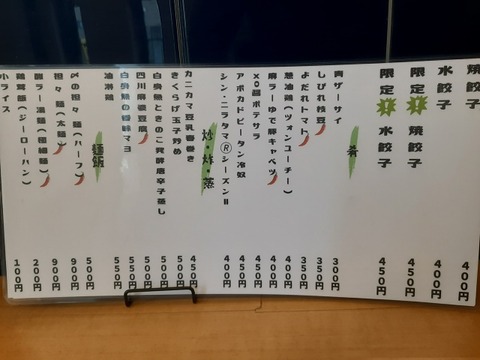 焼餃子 400円
水餃子 400円
限定！焼餃子 450円
限定！水餃子 450円
肴
青ザーサイ 300円
しびれ枝豆 350円
よだれトマト 350円
葱油鶏（ツォンユーチー） 400円
麻ラーゆで豚キャベツ 400円
XO醤ポテサラ 400円
アボカドピータン冷奴 450円
シン・ニラタマⓇシーズンⅡ 400円
炒・炸・蒸
カニカマ豆乳春巻き 450円
きくらげ玉子炒め 500円
白身魚ときのこ発酵唐辛子蒸し 500円
四川麻婆豆腐 500円
白身魚の香味マヨ 550円
油淋鶏 550円
麺飯
〆の担々麺（ハーフ） 500円
担々麺（太麺） 900円
ラー湯麺（極細麺） 900円
鶏茸飯（ジーローハン） 200円
小ライス 100円